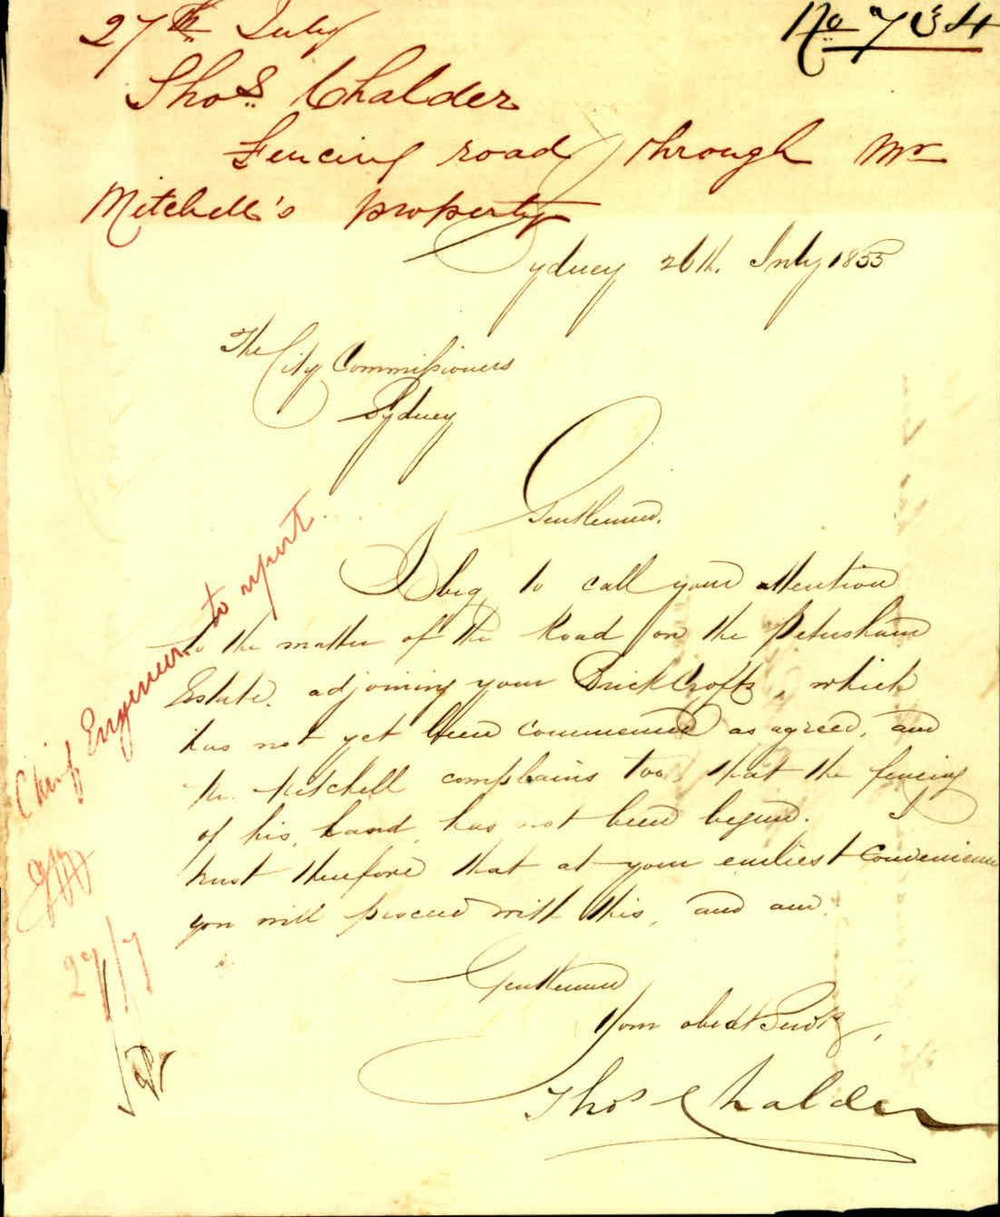 27th July
No 734
Thos Chalder
Fencing road through Mr
Mitchell's property
Sydney 26th. July 1855
The City Commissioners
Sydney
Gentlemen.
I beg to call your attention
to the matter of the Road on the Petersham
Estate, adjoining your Brick Crofts, which
has not yet been commenced as agreed, and
Mr. Mitchell complains too, that the fencing
of his land has not been begun. I
trust therefore that at your earliest convenience
you will proceed with this, and am
Gentlemen
Your obedt Servt
Thos Chalder
Chief Engineer to report
27/7